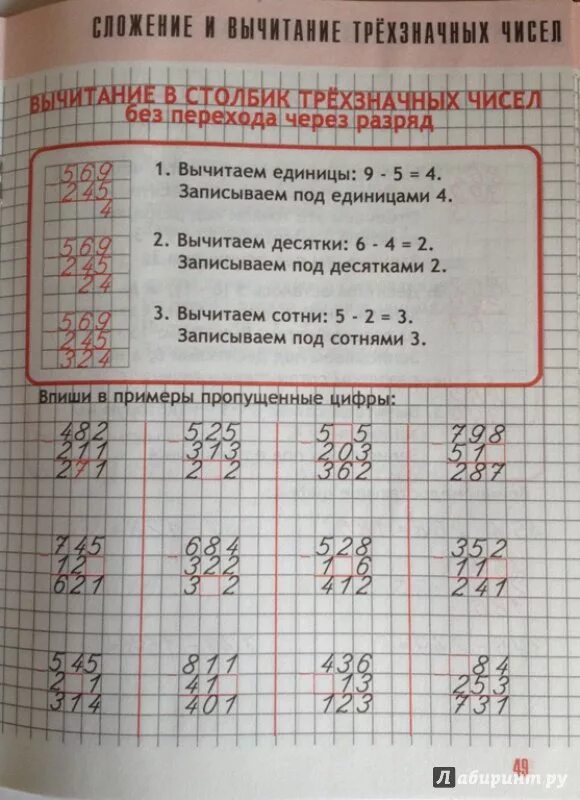 СЛОЖЕНИЕ И ВЫЧИТАНИЕ ТРЁХЗНАЧНЫХ ЧИСЕЛ
ВЫЧИТАНИЕ В СТОЛБИК ТРЁХЗНАЧНЫХ ЧИСЕЛ
без перехода через разряд
- 569
245
4
1. Вычитаем единицы: 9 - 5 = 4.
Записываем под единицами 4.
- 569
245
24
2. Вычитаем десятки: 6 - 4 = 2.
Записываем под десятками 2.
- 569
245
324
3. Вычитаем сотни: 5 - 2 = 3.
Записываем под сотнями 3.
Впиши в примеры пропущенные цифры:
- 482 - 525 - 5□5 - 798
211 313 203 51□
271 2□2 362 287
- 745 - 684 - 528 - 352
12□ 322 1□6 11□
621 3□2 412 241
- 545 - 811 - 436 - □84
2□1 41□ □13 253
314 401 123 731
49
Лабиринт.ру